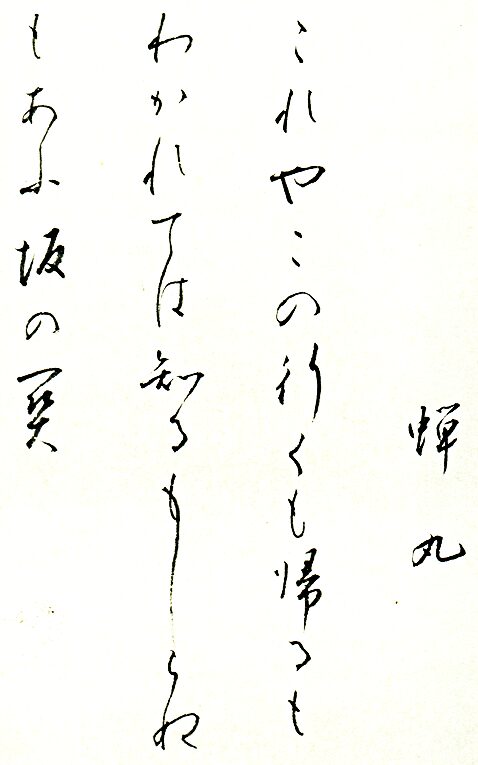 蝉丸
これやこの行くも帰るも
わかれては知るもしらぬ
もあふ坂の関